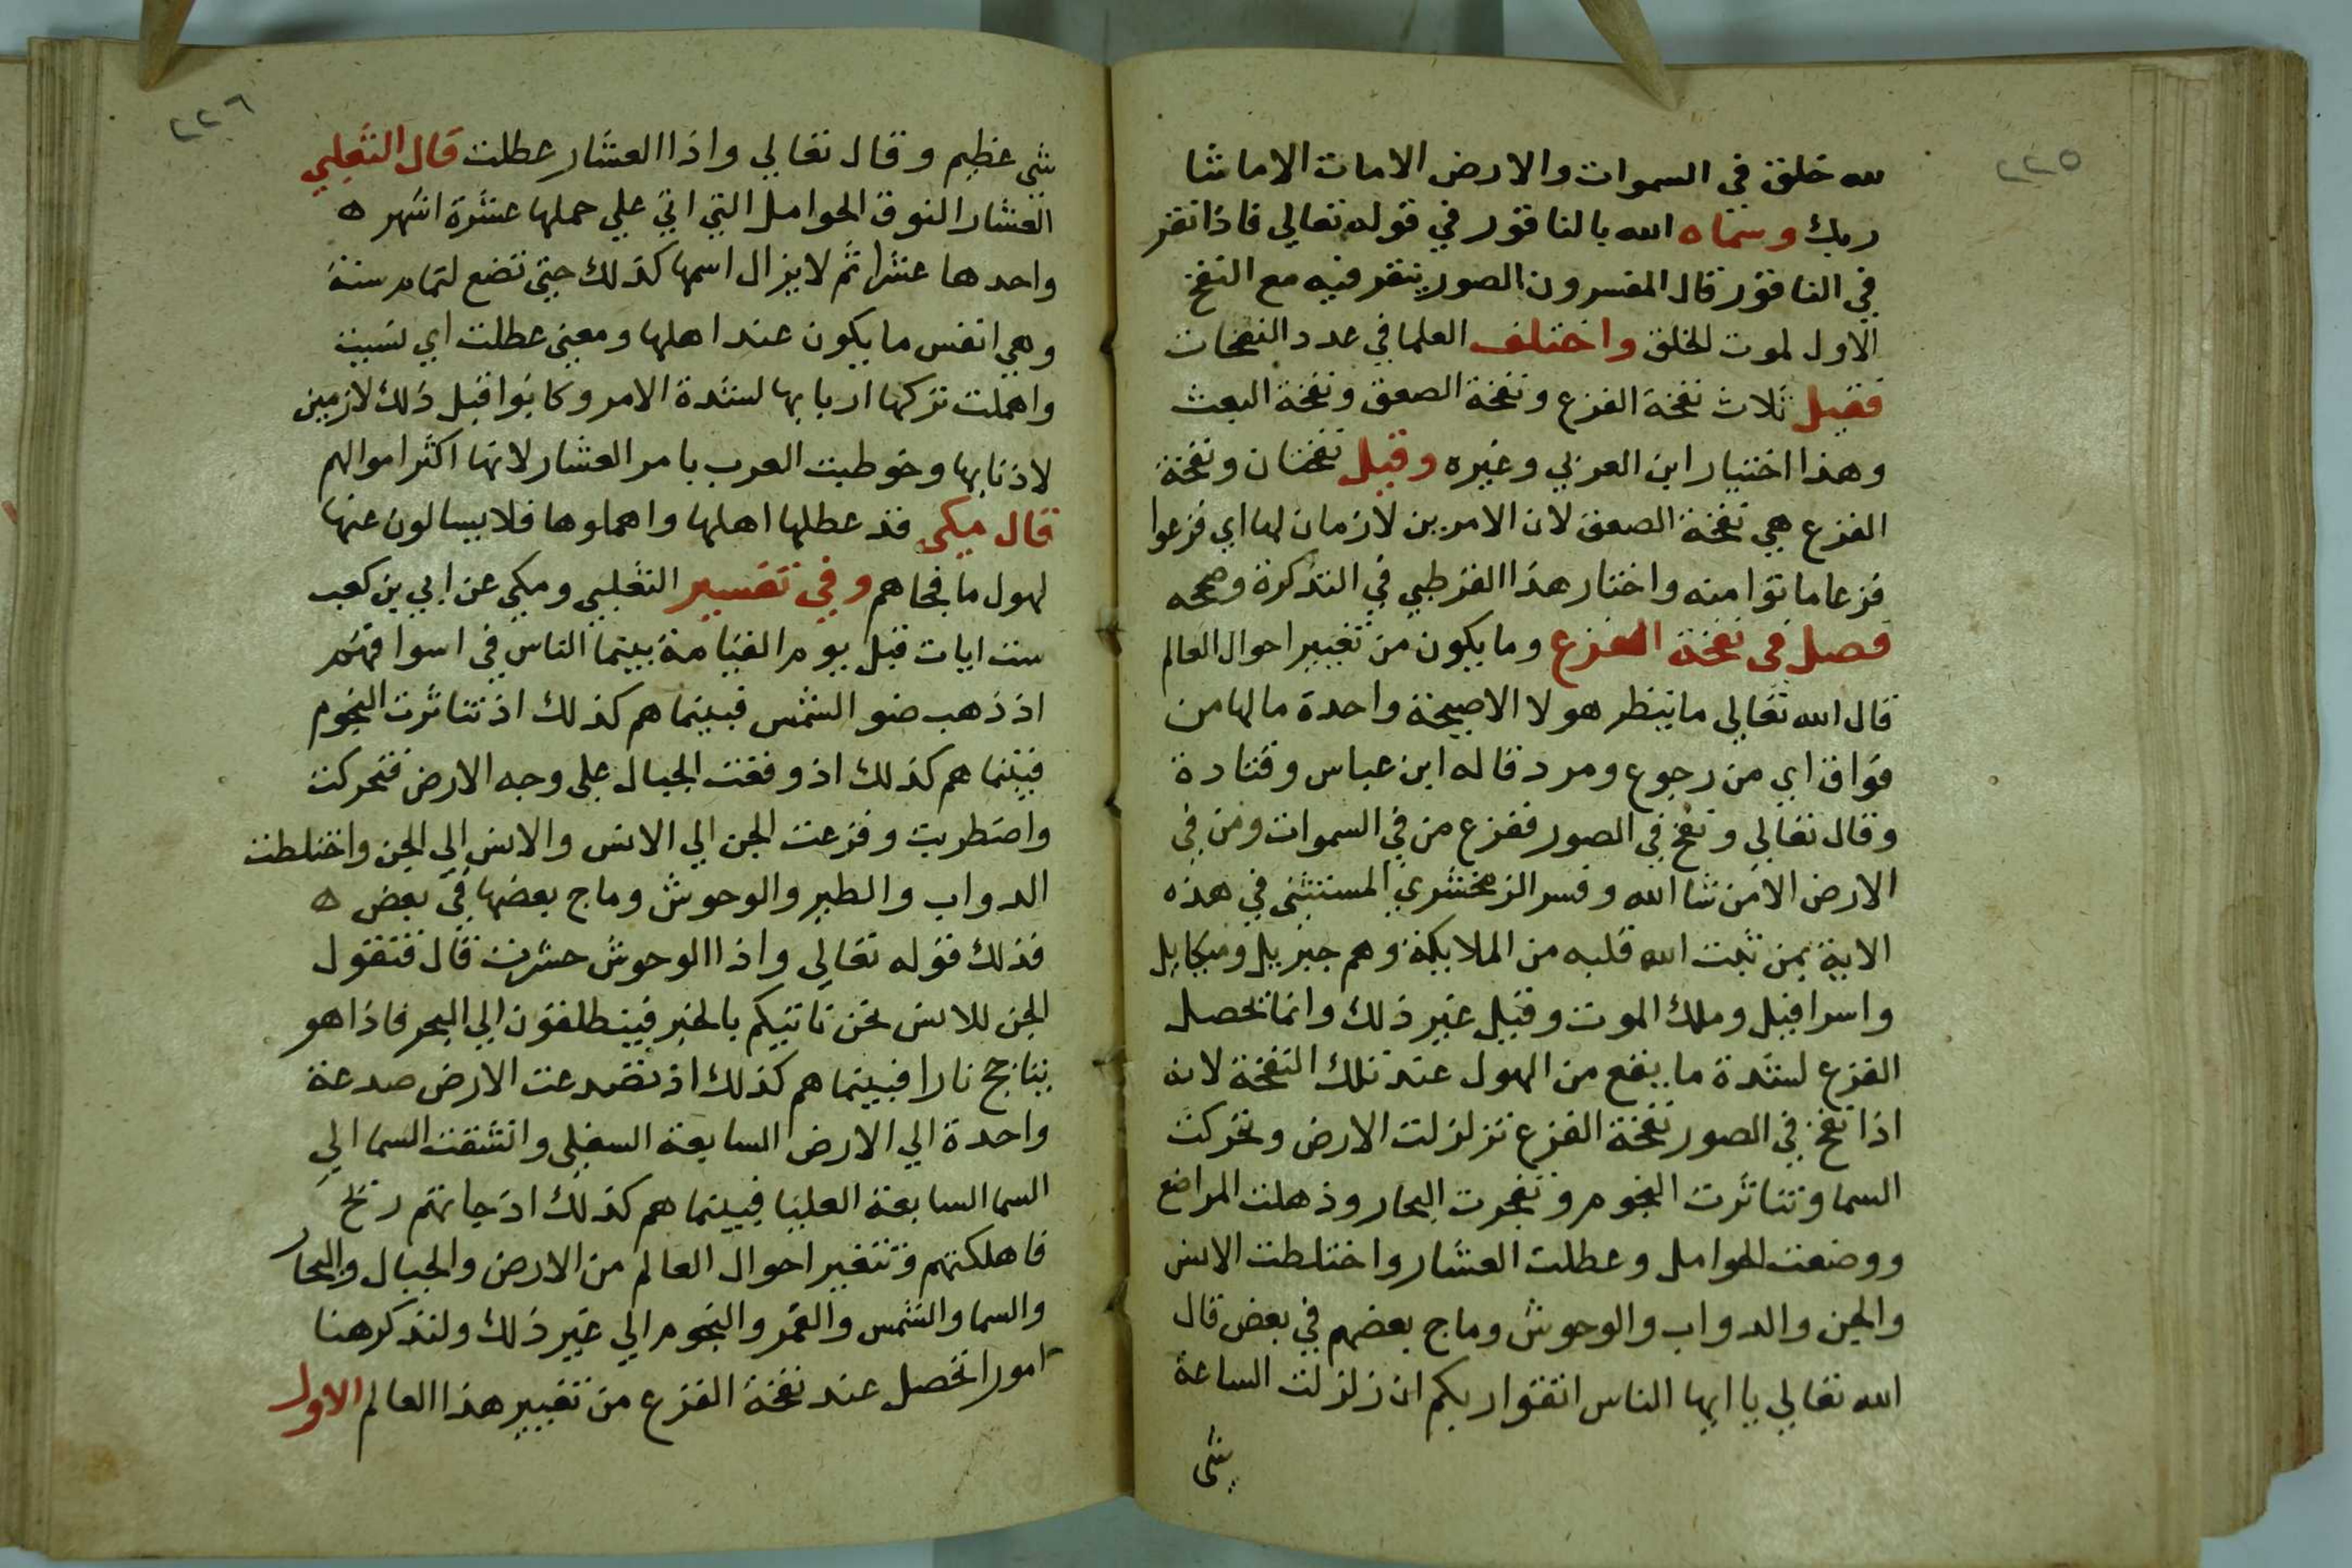 ٢٢٥
لله خلق في السموات والارض الامات الاماشا
ربك وسماه الله بالناقور في قوله تعالي فاذا نقر
في الناقور قال المفسرون الصور ينقر فيه مع النفخ
الاول لموت الخلق واختلف العلما في عدد النفخات
فقيل ثلاث نفخة الفزع ونفخة الصعق ونفخة البعث
وهذا اختيار ابن العربي وغيره وقيل نفختان ونفخة
الفزع هي نفخة الصعق لان الامرين لازمان لها اي فزعوا
فزعا ماتوا منه واختار هذا القرطبي في التذكرة وصححه
فصل في نفخة الفزع وما يكون من تغيير احوال العالم
قال الله تعالي ما ينظر هولا الا صيحة واحدة مالها من
فواق اي من رجوع ومرد قاله ابن عباس وقتادة
وقال تعالي ونفخ في الصور ففزع من في السموات ومن في
الارض الا من شا الله وفسر الزمخشري المستثني في هذه
الاية بمن ثبت الله قلبه من الملايكة وهم جبريل وميكايل
واسرافيل وملك الموت وقيل غير ذلك وانما تحصل
الفزع لشدة ما يقع من الهول عند تلك النفخة لانه
اذا نفخ في الصور نفخة الفزع تزلزلت الارض وتحركت
السما وتناثرت النجوم وتفجرت البحار وذهلت المراضع
ووضعت الحوامل وعطلت العشار واختلطت الانس
والجن والدواب والوحوش وماج بعضهم في بعض قال
الله تعالي يا ايها الناس اتقوا ربكم ان زلزلت الساعة
شي
٢٢٦
شي عظيم وقال تعالي واذا العشار عطلت قال الثعلبي
العشار النوق الحوامل التي اتي علي حملها عشرة اشهر ه
واحدها عشرا ثم لا يزال اسمها كذلك حتي تضع لتمام سنة
وهي انفس ما يكون عند اهلها ومعني عطلت اي نسيت
واهملت تركها اربابها لشدة الامر وكانوا قبل ذلك لازمين
لاذنابها وخوطبت العرب بامر العشار لانها اكثر اموالهم
قال مكي قد عطلها اهلها واهملوها فلا يسالون عنها
لهول ما فجاهم وفي تفسير الثعلبي ومكي عن ابي بن كعب
ست ايات قبل يوم القيامة بينما الناس في اسواقهم
اذ ذهب ضو الشمس فبينما هم كذلك اذ تناثرت النجوم
فبينما هم كذلك اذ وقعت الجبال علي وجه الارض فتحركت
واضطربت وفزعت الجن الي الانس والانس الي الجن واختلطت
الدواب والطير والوحوش وماج بعضها في بعض ه
فذلك قوله تعالي واذا الوحوش حشرت قال فتقول
الجن للانس نحن ناتيكم بالخبر فينطلقون الي البحر فاذا هو
يتاجج نارا فبينما هم كذلك اذ تصدعت الارض صدعة
واحدة الي الارض السابعة السفلي وانشقت السما الي
السما السابعة العليا فبينما هم كذلك اذ جاتهم ريح
فاهلكتهم وتتغير احوال العالم من الارض والجبال والبحار
والسما والشمس والقمر والنجوم الي غير ذلك ولنذكر هنا
امورا تحصل عند نفخة الفزع من تغيير هذا العالم الاول